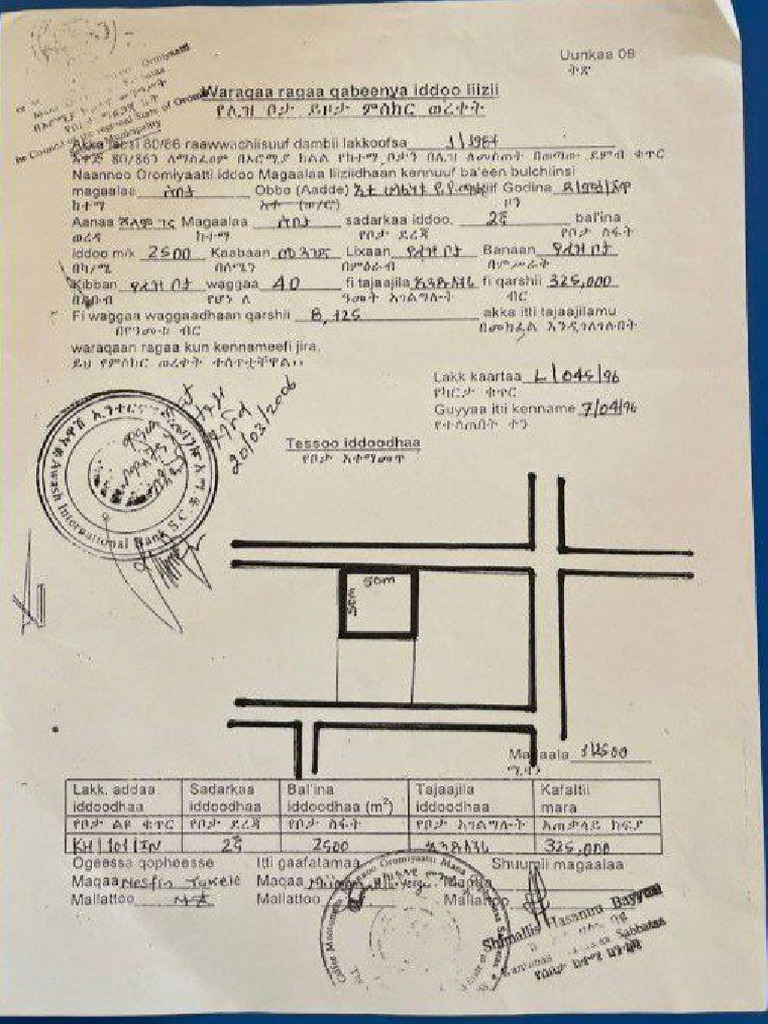 Uunkaa 09
ቅጽ
Waraqaa ragaa qabeenya iddoo liizii
የሊዝ ቦታ ይዞታ ምስክር ወረቀት
Akka labsi 80/86 raawwachiisuuf dambii lakkoofsa 1/1987
አዋጅ 80/86ን ለማስፈፀም በኦሮሚያ ክልል የከተማ ቦታን በሊዝ ለመስጠት በወጣው ደምብ ቁጥር
Naannoo Oromiyaatti iddoo Magaalaa liiziidhaan kennuuf ba'een bulchiinsi
magaalaa ሰበታ Obbo (Aadde) Godina
ከተማ አቶ (ወ/ሮ) ዞን
Aanaa Magaalaa ሰበታ sadarkaa iddoo, 2ኛ bal'ina
ወረዳ ከተማ የቦታ ደረጃ የቦታ ስፋት
iddoo m/k 2500 Kaabaan መንገድ Lixaan የሊዝ ቦታ Banaan የሊዝ ቦታ
በካ/ሜ በሰሜን በምዕራብ በምሥራቅ
Kibban የሊዝ ቦታ waggaa 40 fi tajaajila ኢንዱስትሪ fi qarshii 325,000
በደቡብ የሆነ ለ ዓመት አገልግሎት ብር
Fi waggaa waggaadhaan qarshii 8,125 akka itti tajaajilamu
በየዓመቱ ብር በመክፈል እንዲገለገሉበት
waraqaan ragaa kun kennameefi jira.
ይህ የምስክር ወረቀት ተሰጥቷቸዋል፡፡
Lakk kaartaa L/045/96
የካርታ ቁጥር
Guyyaa itti kenname 7/04/96
የተሰጠበት ቀን
20/03/2006
Awash International Bank S.C.
Tessoo iddoodhaa
የቦታ አቀማመጥ
50m
50m
Magaala 1/2500
Lakk. addaa iddoodhaa Sadarkaa iddoodhaa Bal'ina iddoodhaa (m²) Tajaajila iddoodhaa Kafaltii mara
የቦታ ልዩ ቁጥር የቦታ ደረጃ የቦታ ስፋት የቦታ አገልግሎት አጠቃላይ ክፍያ
KH/101/IN 2ኛ 2500 ኢንዱስትሪ 325,000
Ogeessa qopheesse Itti gaafatamaa Shuumii magaalaa
Maqaa Mesfin Tekele Maqaa Maqaa
Mallattoo Mallattoo Mallattoo
Shimallis Hasanuu Bayyaa